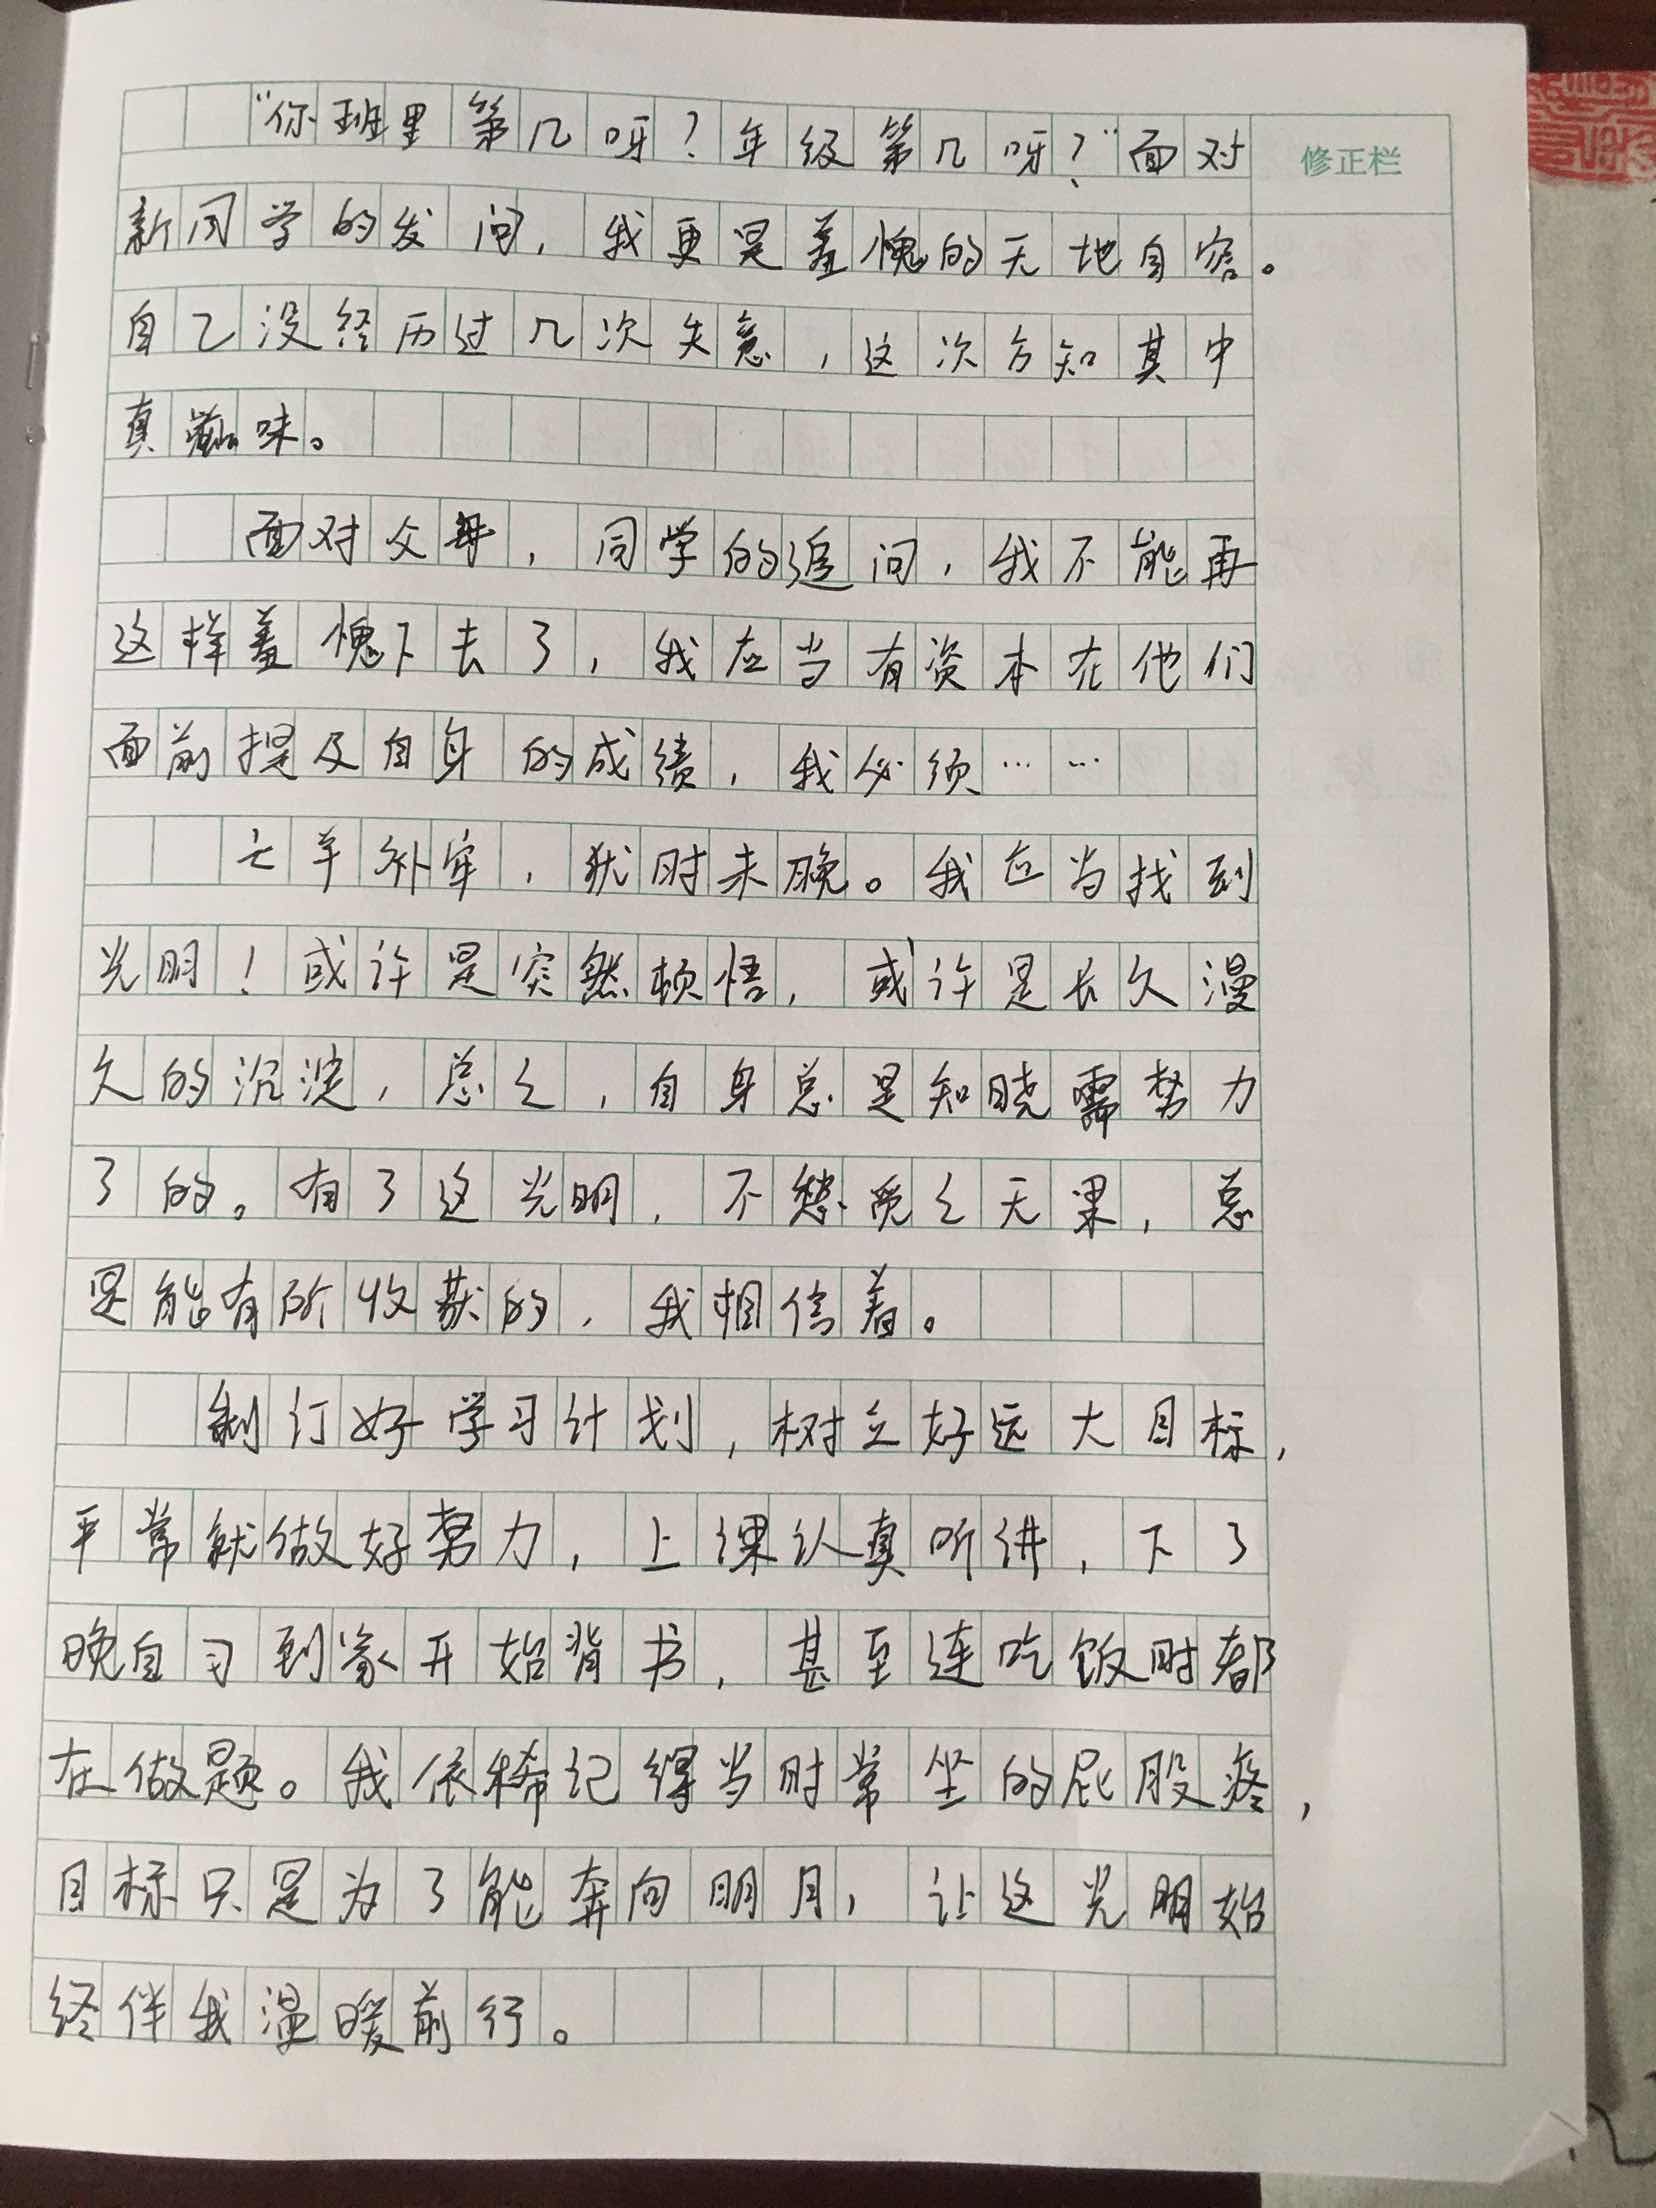 "你班里第几呀？年级第几呀？"面对
修正栏
新同学的发问，我更是羞愧的无地自容。
自己没经历过几次失意，这次方知其中
真滋味。
面对父母，同学的追问，我不能再
这样羞愧下去了，我应当有资本在他们
面前提及自身的成绩，我必须……
亡羊补牢，犹时未晚。我应当找到
光明！或许是突然顿悟，或许是长久漫
久的沉淀，总之，自身总是知晓需努力
了的。有了这光明，不愁觅之无果，总
是能有所收获的，我相信着。
制订好学习计划，树立好远大目标，
平常就做好努力，上课认真听讲，下了
晚自习到家开始背书，甚至连吃饭时都
在做题。我依稀记得当时常坐的屁股疼，
目标只是为了能奔向明月，让这光明始
终伴我温暖前行。